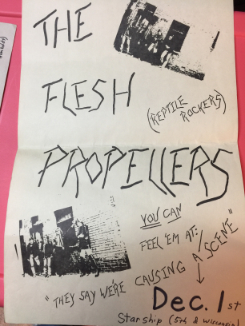 THE
FLESH
(REPTILE
ROCKERS)
PROPELLERS
YOU CAN
FEEL 'EM AT:
"THEY SAY WE'RE CAUSING A SCENE"
Dec. 1st
Starship (5th &